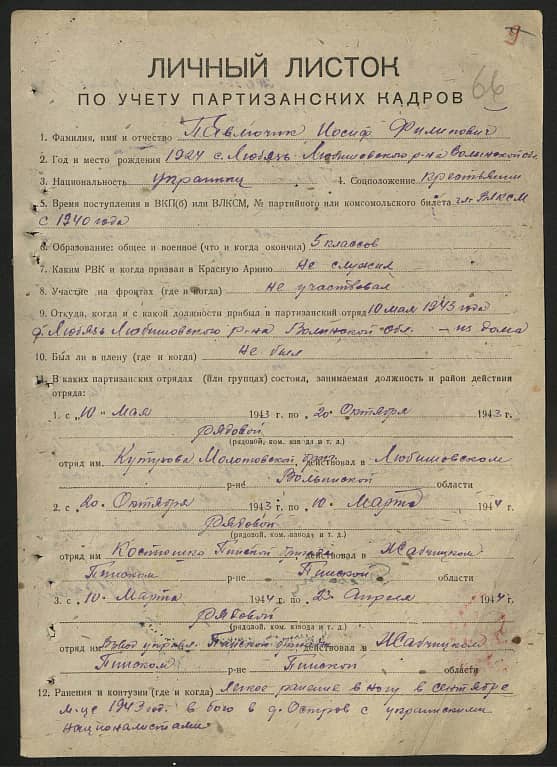 9
66
ЛИЧНЫЙ ЛИСТОК
ПО УЧЕТУ ПАРТИЗАНСКИХ КАДРОВ
1. Фамилия, имя и отчество Павлючик Иосиф Филипович
2. Год и место рождения 1924 с. Любязь Любишовского р-на Волынской обл.
3. Национальность украинец 4. Соцположение крестьянин
5. Время поступления в ВКП(б) или ВЛКСМ, № партийного или комсомольского билета чл. ВЛКСМ
с 1940 года
6. Образование: общее и военное (что и когда окончил) 5 классов
7. Каким РВК и когда призван в Красную Армию не служил
8. Участие на фронтах (где и когда) не участвовал
9. Откуда, когда и с какой должности прибыл в партизанский отряд 10 мая 1943 года
д. Любязь Любишовского р-на Волынской обл. – из дома
10. Был ли в плену (где и когда) не был
11. В каких партизанских отрядах (или группах) состоял, занимаемая должность и район действия
отряда:
1. с „10" мая 1943 г. по 20 октября 1943 г.
рядовой
(рядовой, ком. взвода и т. д.)
отряд им. Кутузова Молотовской действовал в Любишовском
р-не Волынской области
2. с 20 октября 1943 г. по 10 марта 1944 г.
рядовой
(рядовой, ком. взвода и т. д.)
отряд им. Костюшко Пинской бригады действовал в Жабчицком
Пинском р-не Пинской области
3. с 10 марта 1944 г. по 23 апреля 1944 г.
рядовой
(рядовой, ком. взвода и т. д.)
отряд им. Взвод управл. Пинской бригады действовал в Жабчицком
Пинском р-не Пинской области
12. Ранения и контузии (где и когда) легкое ранение в ногу в сентябре
м-це 1943 г. в бою в д. Остров с украинскими
националистами